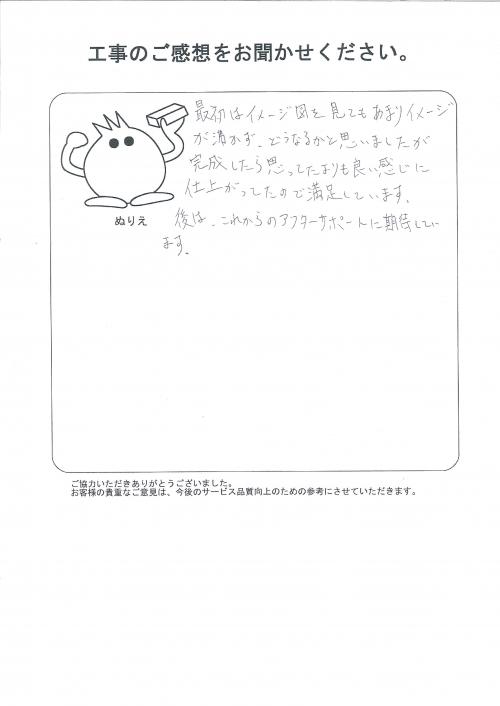 工事のご感想をお聞かせください。
最初はイメージ図を見てもあまりイメージ
が沸かず、どうなるかと思いましたが
完成したら思ってたよりも良い感じに
仕上がってたので満足しています。
後は、これからのアフターサポートに期待してい
ます。
ぬりえ
ご協力いただきありがとうございました。
お客様の貴重なご意見は、今後のサービス品質向上のための参考にさせていただきます。